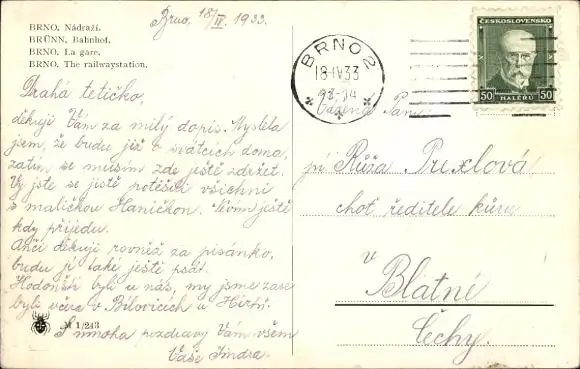 Brno, 18/IV. 1933.
BRNO, Nádraží.
BRÜNN, Bahnhof.
BRNO, La gare.
BRNO, The railwaystation.
Drahá tetičko,
děkuji Vám za milý dopis. Myslela
jsem, že budu již o svátcích doma,
zatím se musím zde ještě zdržet.
Vy jste se jistě potěšili všichni
s maličkou Haničkou. Nevím ještě
kdy přijedu.
Anči děkuji rovněž za písánko,
budu jí také ještě psát.
Hodonští byli u nás, my jsme zase
byli včera v Bílovicích u
S mnoha pozdravy Vám všem
Vaše Jindra.
M 1/243
BRNO 2
18.IV.33
ČESKOSLOVENSKO
50 HALÉŘŮ 50
Vážená Paní
pí Růža Trexlová
choť ředitele kůru
v Blatné
Čechy.